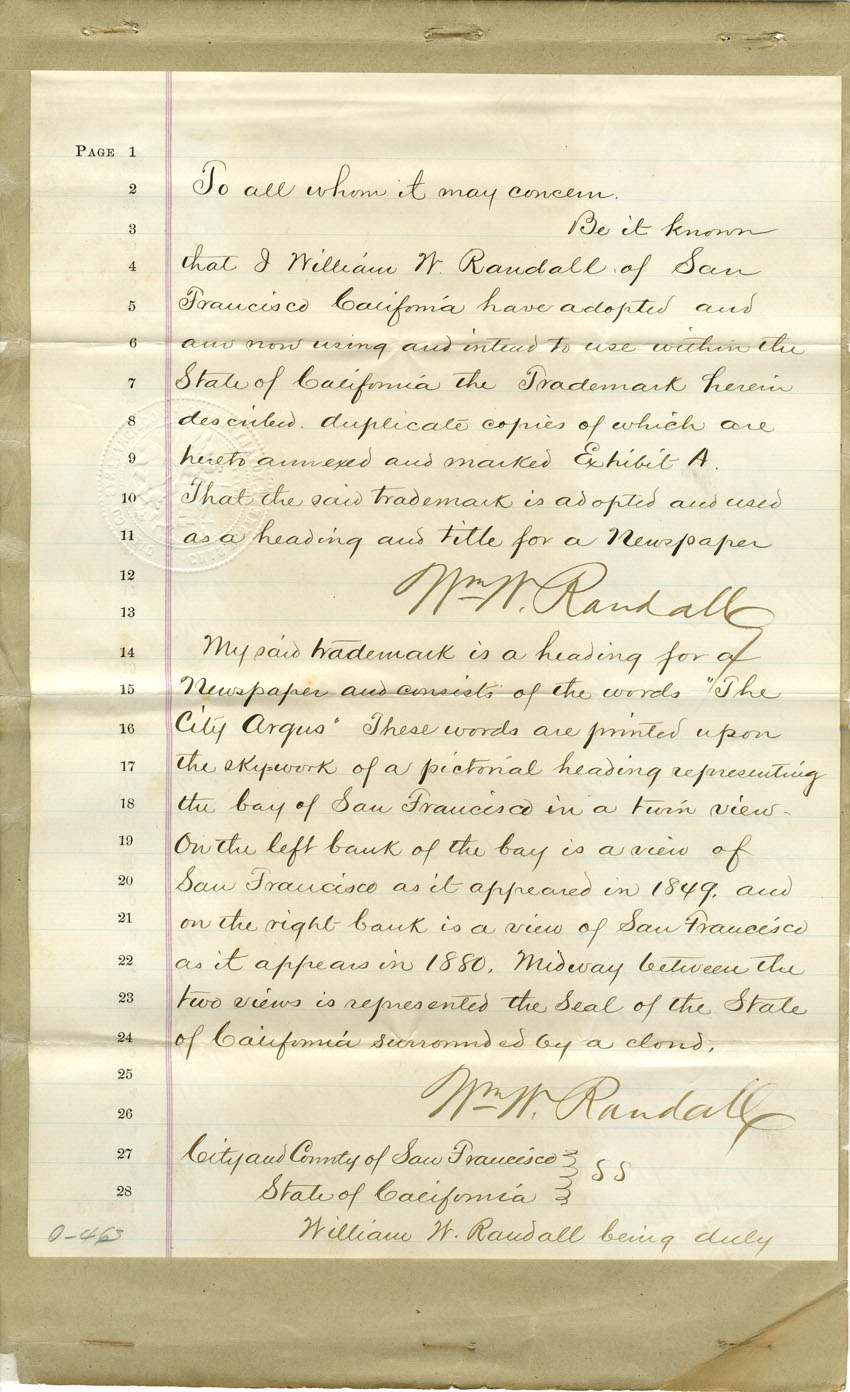 PAGE 1
2 To all whom it may concern.
3 Be it known
4 that I William W. Randall of San
5 Francisco California have adopted and
6 am now using and intend to use within the
7 State of California the Trademark herein
8 described. duplicate copies of which are
9 hereto annexed and marked Exhibit A.
10 That the said trademark is adopted and used
11 as a heading and title for a Newspaper
12
Wm W. Randall
13
14 My said trademark is a heading for a
15 Newspaper and consists of the words "The
16 City Argus" These words are printed upon
17 the sky-work of a pictorial heading representing
18 the bay of San Francisco in a twin view-
19 On the left bank of the bay is a view of
20 San Francisco as it appeared in 1849. and
21 on the right bank is a view of San Francisco
22 as it appears in 1880. Midway between the
23 two views is represented the Seal of the State
24 of California surrounded by a cloud.
25
Wm W. Randall
26
27 City and County of San Francisco } SS
28 State of California
William W. Randall being duly
0-463